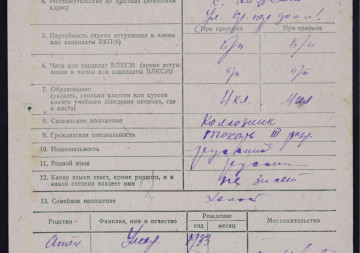 4. Местожительство до призыва (домашний
адрес)
5. Партийность (время вступления в члены
или кандидаты ВКП(б)
При призыве При призыве
б/п б/п
6. Член или кандидат ВЛКСМ (время всту-
пления в члены или кандидаты ВЛКСМ)
б/п б/п
7. Образование:
(указать, сколько классов или курсов
какого учебного заведения окончил, где
и когда)
4 кл. 4 кл
8. Социальное положение Колхозник
9. Гражданская специальность токарь III раз.
10. Национальность русский
11. Родной язык русский
12. Какие языки знает, кроме родного, и в
какой степени владеет ими не знает
13. Семейное положение холост
Родство Фамилия, имя и отчество Рождение Местожительство
год месяц
отец 1883